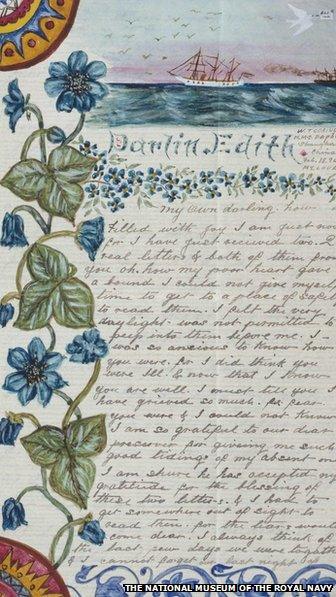 Darlin Edith
My own darling. how
filled with joy I am just now
for I have just received two
real letters & both of them from
you oh. how my poor heart gave
a bound. I could not give myself
time to get to a place of
to read them. I felt the very
daylight. was not permitted to
peep into them before me. I
was so anxious to know how
you were. for I did think you
were Ill. & now that I know
you are well. I must tell you
have grieved so much. for fear
you were & I could not know
I am so grateful to our dear
preserver for giving me such
good tidings of my absent
I am shure he has accepted my
gratitude for the blessing of
these two letters. & I have to
get somewhere out of sight to
read them. for the tears would
come dear. I always think of
the last few days we were together
& I cannot forget our last night
THE NATIONAL MUSEUM OF THE ROYAL NAVY